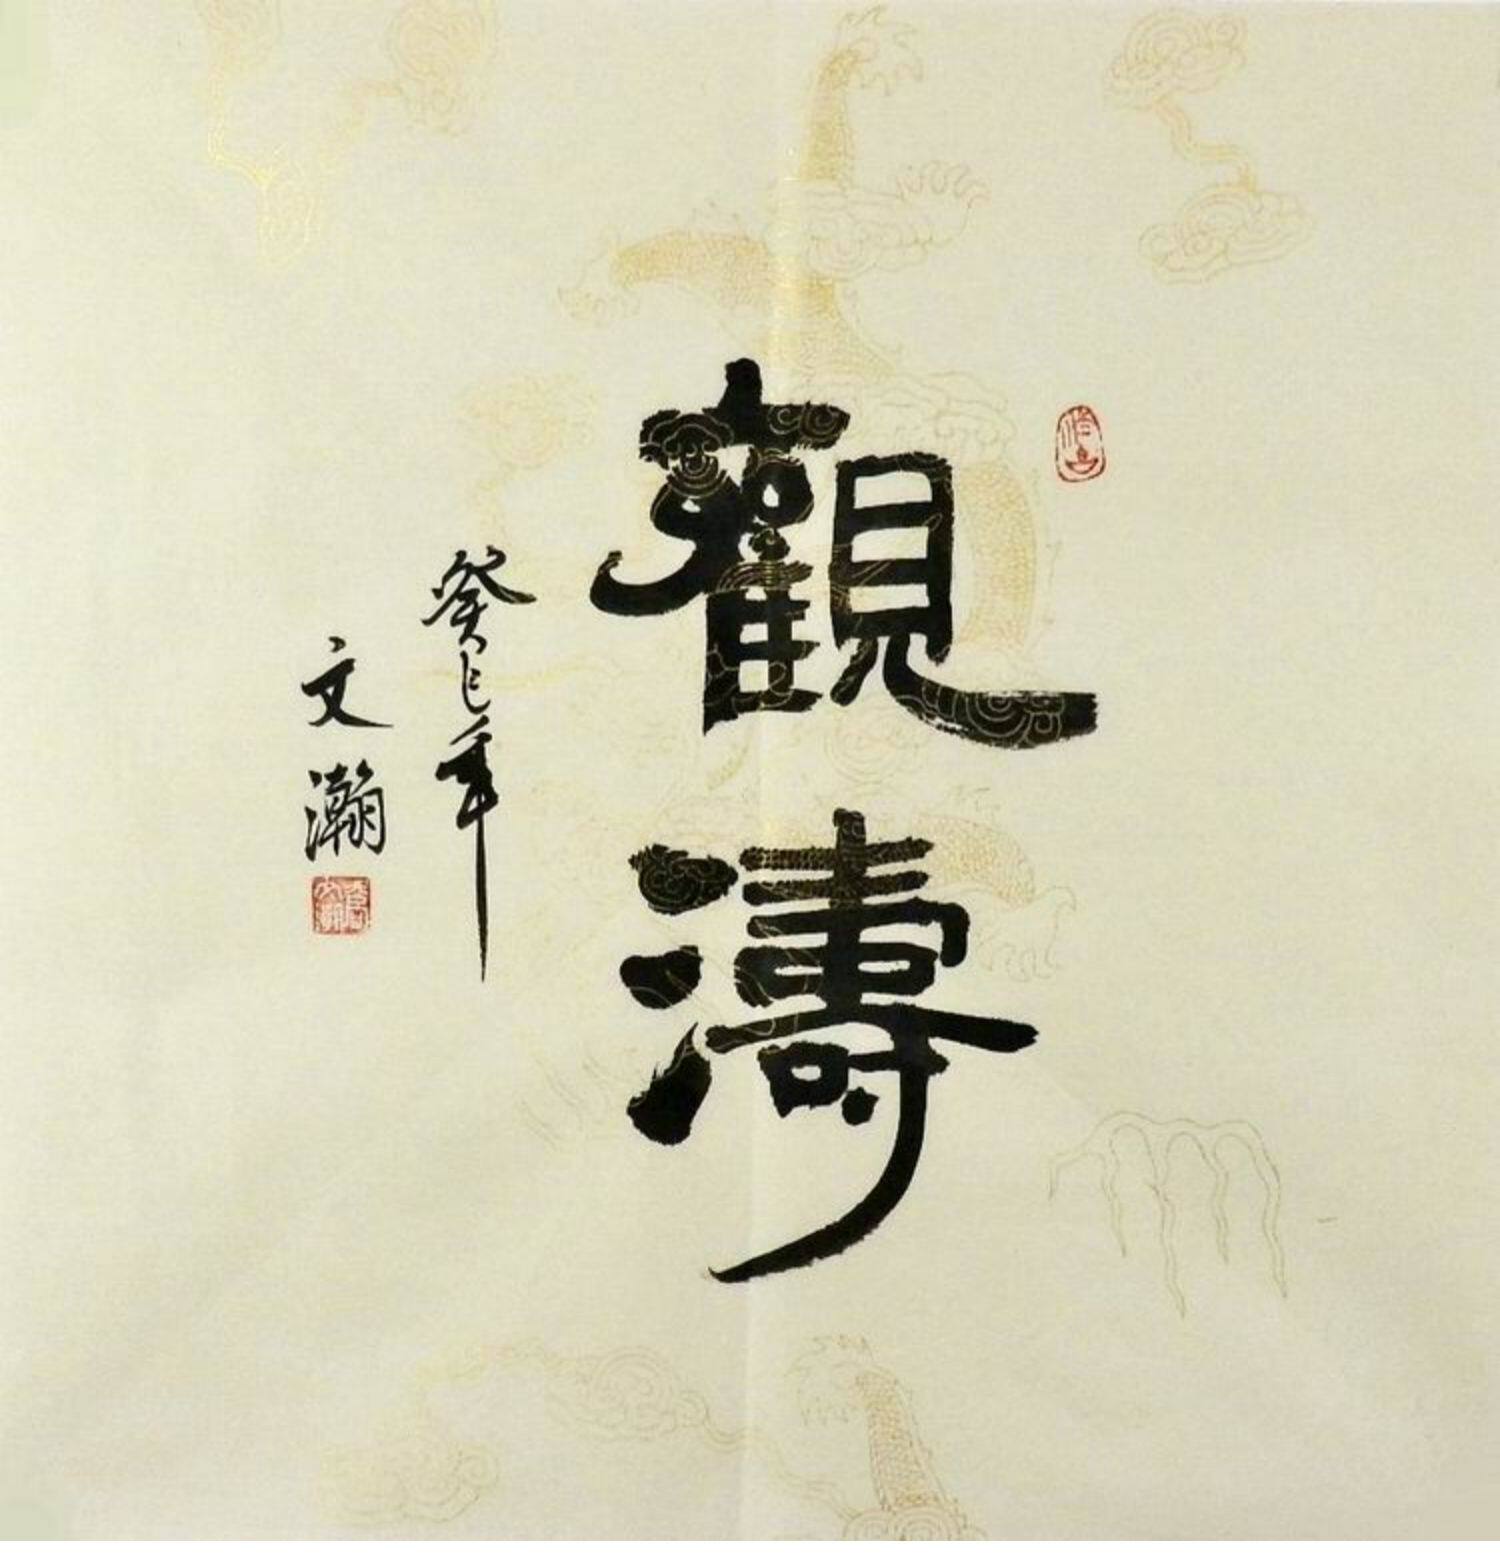 觀濤
癸巳年
文瀚